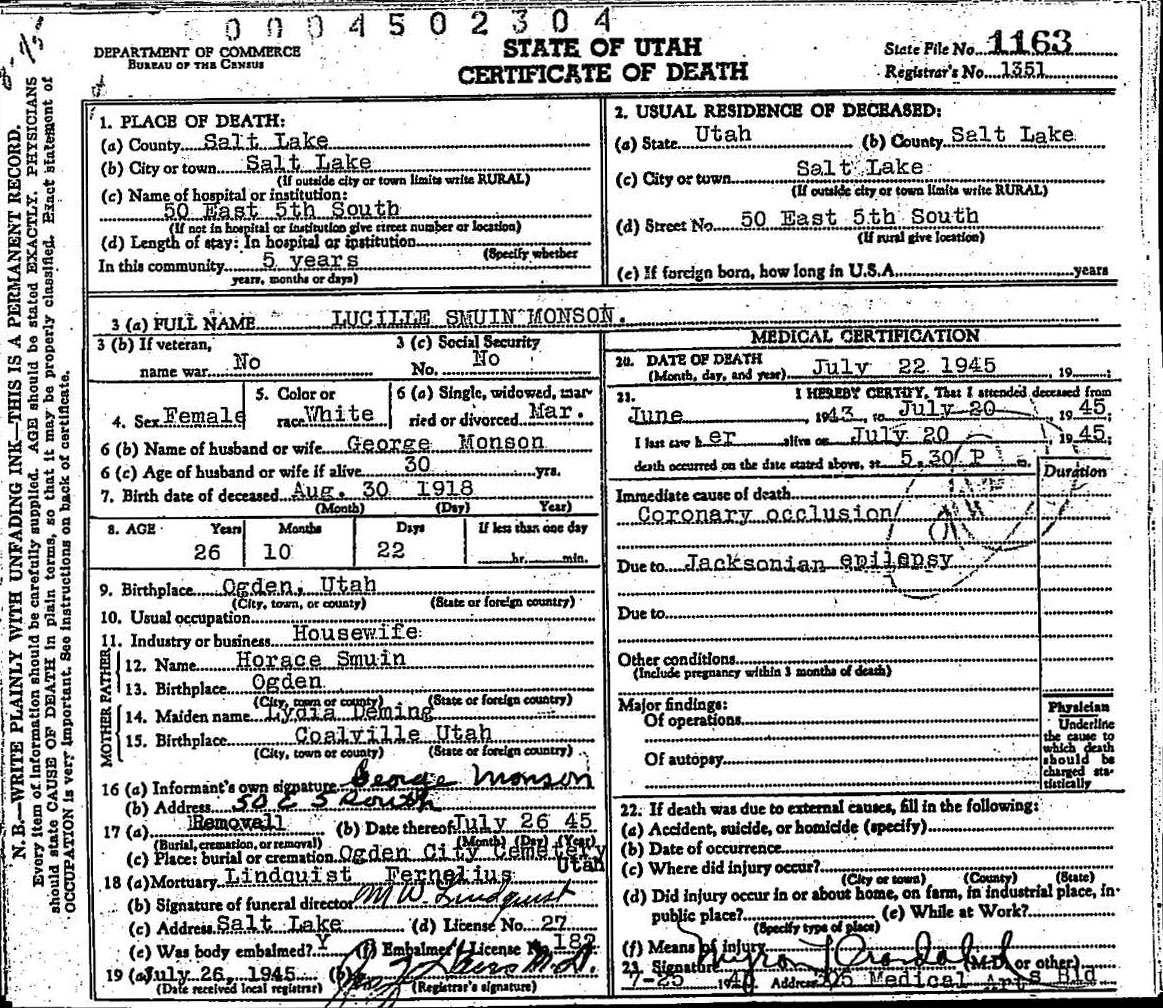 0004502304
DEPARTMENT OF COMMERCE
BUREAU OF THE CENSUS
STATE OF UTAH
CERTIFICATE OF DEATH
State File No. 1163
Registrar's No. 1351
N. B.—WRITE PLAINLY WITH UNFADING INK—THIS IS A PERMANENT RECORD.
Every item of information should be carefully supplied. AGE should be stated EXACTLY. PHYSICIANS
should state CAUSE OF DEATH in plain terms, so that it may be properly classified. Exact statement of
OCCUPATION is very important. See instructions on back of certificate.
1. PLACE OF DEATH:
(a) County Salt Lake
(b) City or town Salt Lake
(If outside city or town limits write RURAL)
(c) Name of hospital or institution:
50 East 5th South
(If not in hospital or institution give street number or location)
(d) Length of stay: In hospital or institution
(Specify whether
In this community 5 years
years, months or days)
2. USUAL RESIDENCE OF DECEASED:
(a) State Utah (b) County Salt Lake
(c) City or town Salt Lake
(If outside city or town limits write RURAL)
(d) Street No. 50 East 5th South
(If rural give location)
(e) If foreign born, how long in U.S.A. years
3 (a) FULL NAME LUCILLE SMUIN MONSON.
3 (b) If veteran, name war No
3 (c) Social Security No. No
4. Sex Female
5. Color or race White
6 (a) Single, widowed, married or divorced Mar.
6 (b) Name of husband or wife George Monson
6 (c) Age of husband or wife if alive 30 yrs.
7. Birth date of deceased Aug. 30 1918
(Month) (Day) Year)
8. AGE Years Months Days If less than one day
26 10 22 hr. min.
9. Birthplace Ogden, Utah
(City, town, or county) (State or foreign country)
10. Usual occupation
11. Industry or business Housewife
FATHER
12. Name Horace Smuin
13. Birthplace Ogden
(City, town or county) (State or foreign country)
MOTHER
14. Maiden name Lydia Deming
15. Birthplace Coalville Utah
(City, town or county) (State or foreign country)
16 (a) Informant's own signature George Monson
(b) Address 50 E 5 South
17 (a) Removall (b) Date thereof July 26 45
(Burial, cremation, or removal) (Month) (Day) (Year)
(c) Place: burial or cremation Ogden City Cemetery
Utah
18 (a) Mortuary Lindquist Fernelius
(b) Signature of funeral director M W Lindquist
(c) Address Salt Lake (d) License No. 27
(e) Was body embalmed? Y (f) Embalmer License No.
19 (a) July 26, 1945 (b) M.D.
(Date received local registrar) (Registrar's signature)
MEDICAL CERTIFICATION
20. DATE OF DEATH
(Month, day, and year) July 22 1945 , 19 ;
21. I HEREBY CERTIFY, That I attended deceased from
June , 1943, to July 20 , 1945;
I last saw her alive on July 20 , 1945;
death occurred on the date stated above, at 5.30 P m.
Duration
Immediate cause of death
Coronary occlusion
Due to Jacksonian epilepsy
Due to
Other conditions
(Include pregnancy within 3 months of death)
Major findings:
Of operations
Of autopsy
Physician
Underline
the cause to
which death
should be
charged sta-
tistically
22. If death was due to external causes, fill in the following:
(a) Accident, suicide, or homicide (specify)
(b) Date of occurrence
(c) Where did injury occur?
(City or town) (County) (State)
(d) Did injury occur in or about home, on farm, in industrial place, in
public place? (e) While at Work?
(Specify type of place)
(f) Means of injury
23. Signature Myron (M.D. or other)
7-25 Address Medical Arts Bld